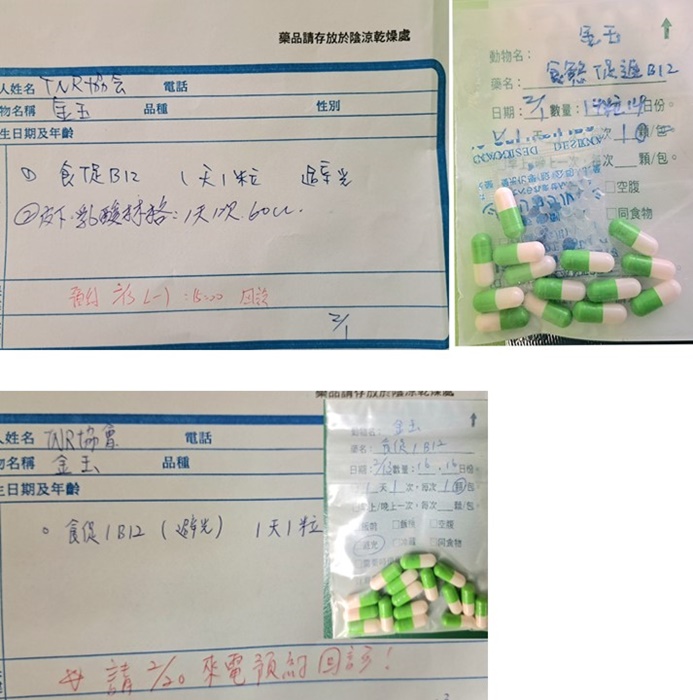 藥品請存放於陰涼乾燥處
人姓名 TNR協會 電話
物名稱 金玉 品種 性別
生日期及年齡
① 食促B12 1天1粒 避光
②皮下.乳酸林格:1天1次.60cc.
預約 2/13 (一) 15:00 回診
2/1
金玉
動物名:
藥名: 食慾促進B12
日期: 2/1 數量: 14粒 14日份
次 1 顆/包
次 顆/包
□空腹
□同食物
藥品請存放於陰涼乾燥處
人姓名 TNR協會 電話
物名稱 金玉 品種
生日期及年齡
。食促/B12 (避光) 1天1粒
請 2/20 來電預約回診!
動物名: 金玉
藥名: 食促/B12
日期: 2/13 數量: 16 . 16日份
1天1次,每次1顆/包
早上/晚上一次,每次 顆/包
□飯前 □飯後 □空腹
避光 □冷藏 □同食物